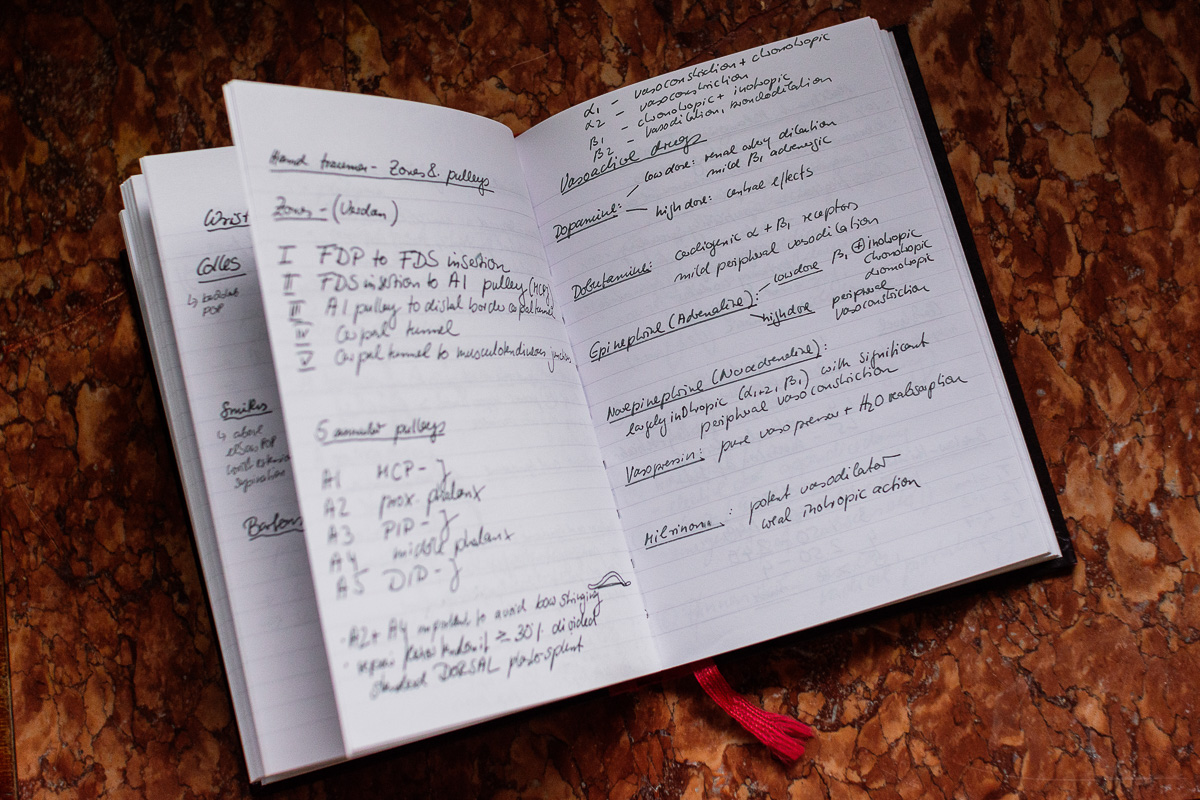 Wrist
Colles
POP
Smiths
↳ above
Bartons
Hand trauma - Zones & pulleys
Zones - (Verdan)
I FDP to FDS insertion
II FDS insertion to A1 pulley (MCPJ)
III A1 pulley to distal border carpal tunnel
IV Carpal tunnel
V Carpal tunnel to musculotendinous junction
5 annular pulleys
A1 MCP - }
A2 prox. phalanx
A3 PIP - }
A4 middle phalanx
A5 DIP - }
· A2 + A4 important to avoid bow stringing
· repair if ≥ 30% divided
standard DORSAL plaster splint
α1 - vasoconstriction + chronotropic
α2 - vasoconstriction
β1 - chronotropic + inotropic
β2 - vasodilation, bronchodilation
Vasoactive drugs
Dopamine: low dose: renal artery dilation
mild β1 adrenergic
high dose: central effects
Dobutamine: cardiogenic α + β1 receptors
mild peripheral vasodilation
Epinephrine (Adrenaline): low dose β1 ⊕ inotropic
chronotropic
dromotropic
high dose peripheral
vasoconstriction
Norepinephrine (Noradrenaline):
largely inotropic (α1+2, β1) with significant
peripheral vasoconstriction
Vasopressin: pure vasopressor + H2O reabsorption
Milrinone: potent vasodilator
weak inotropic action